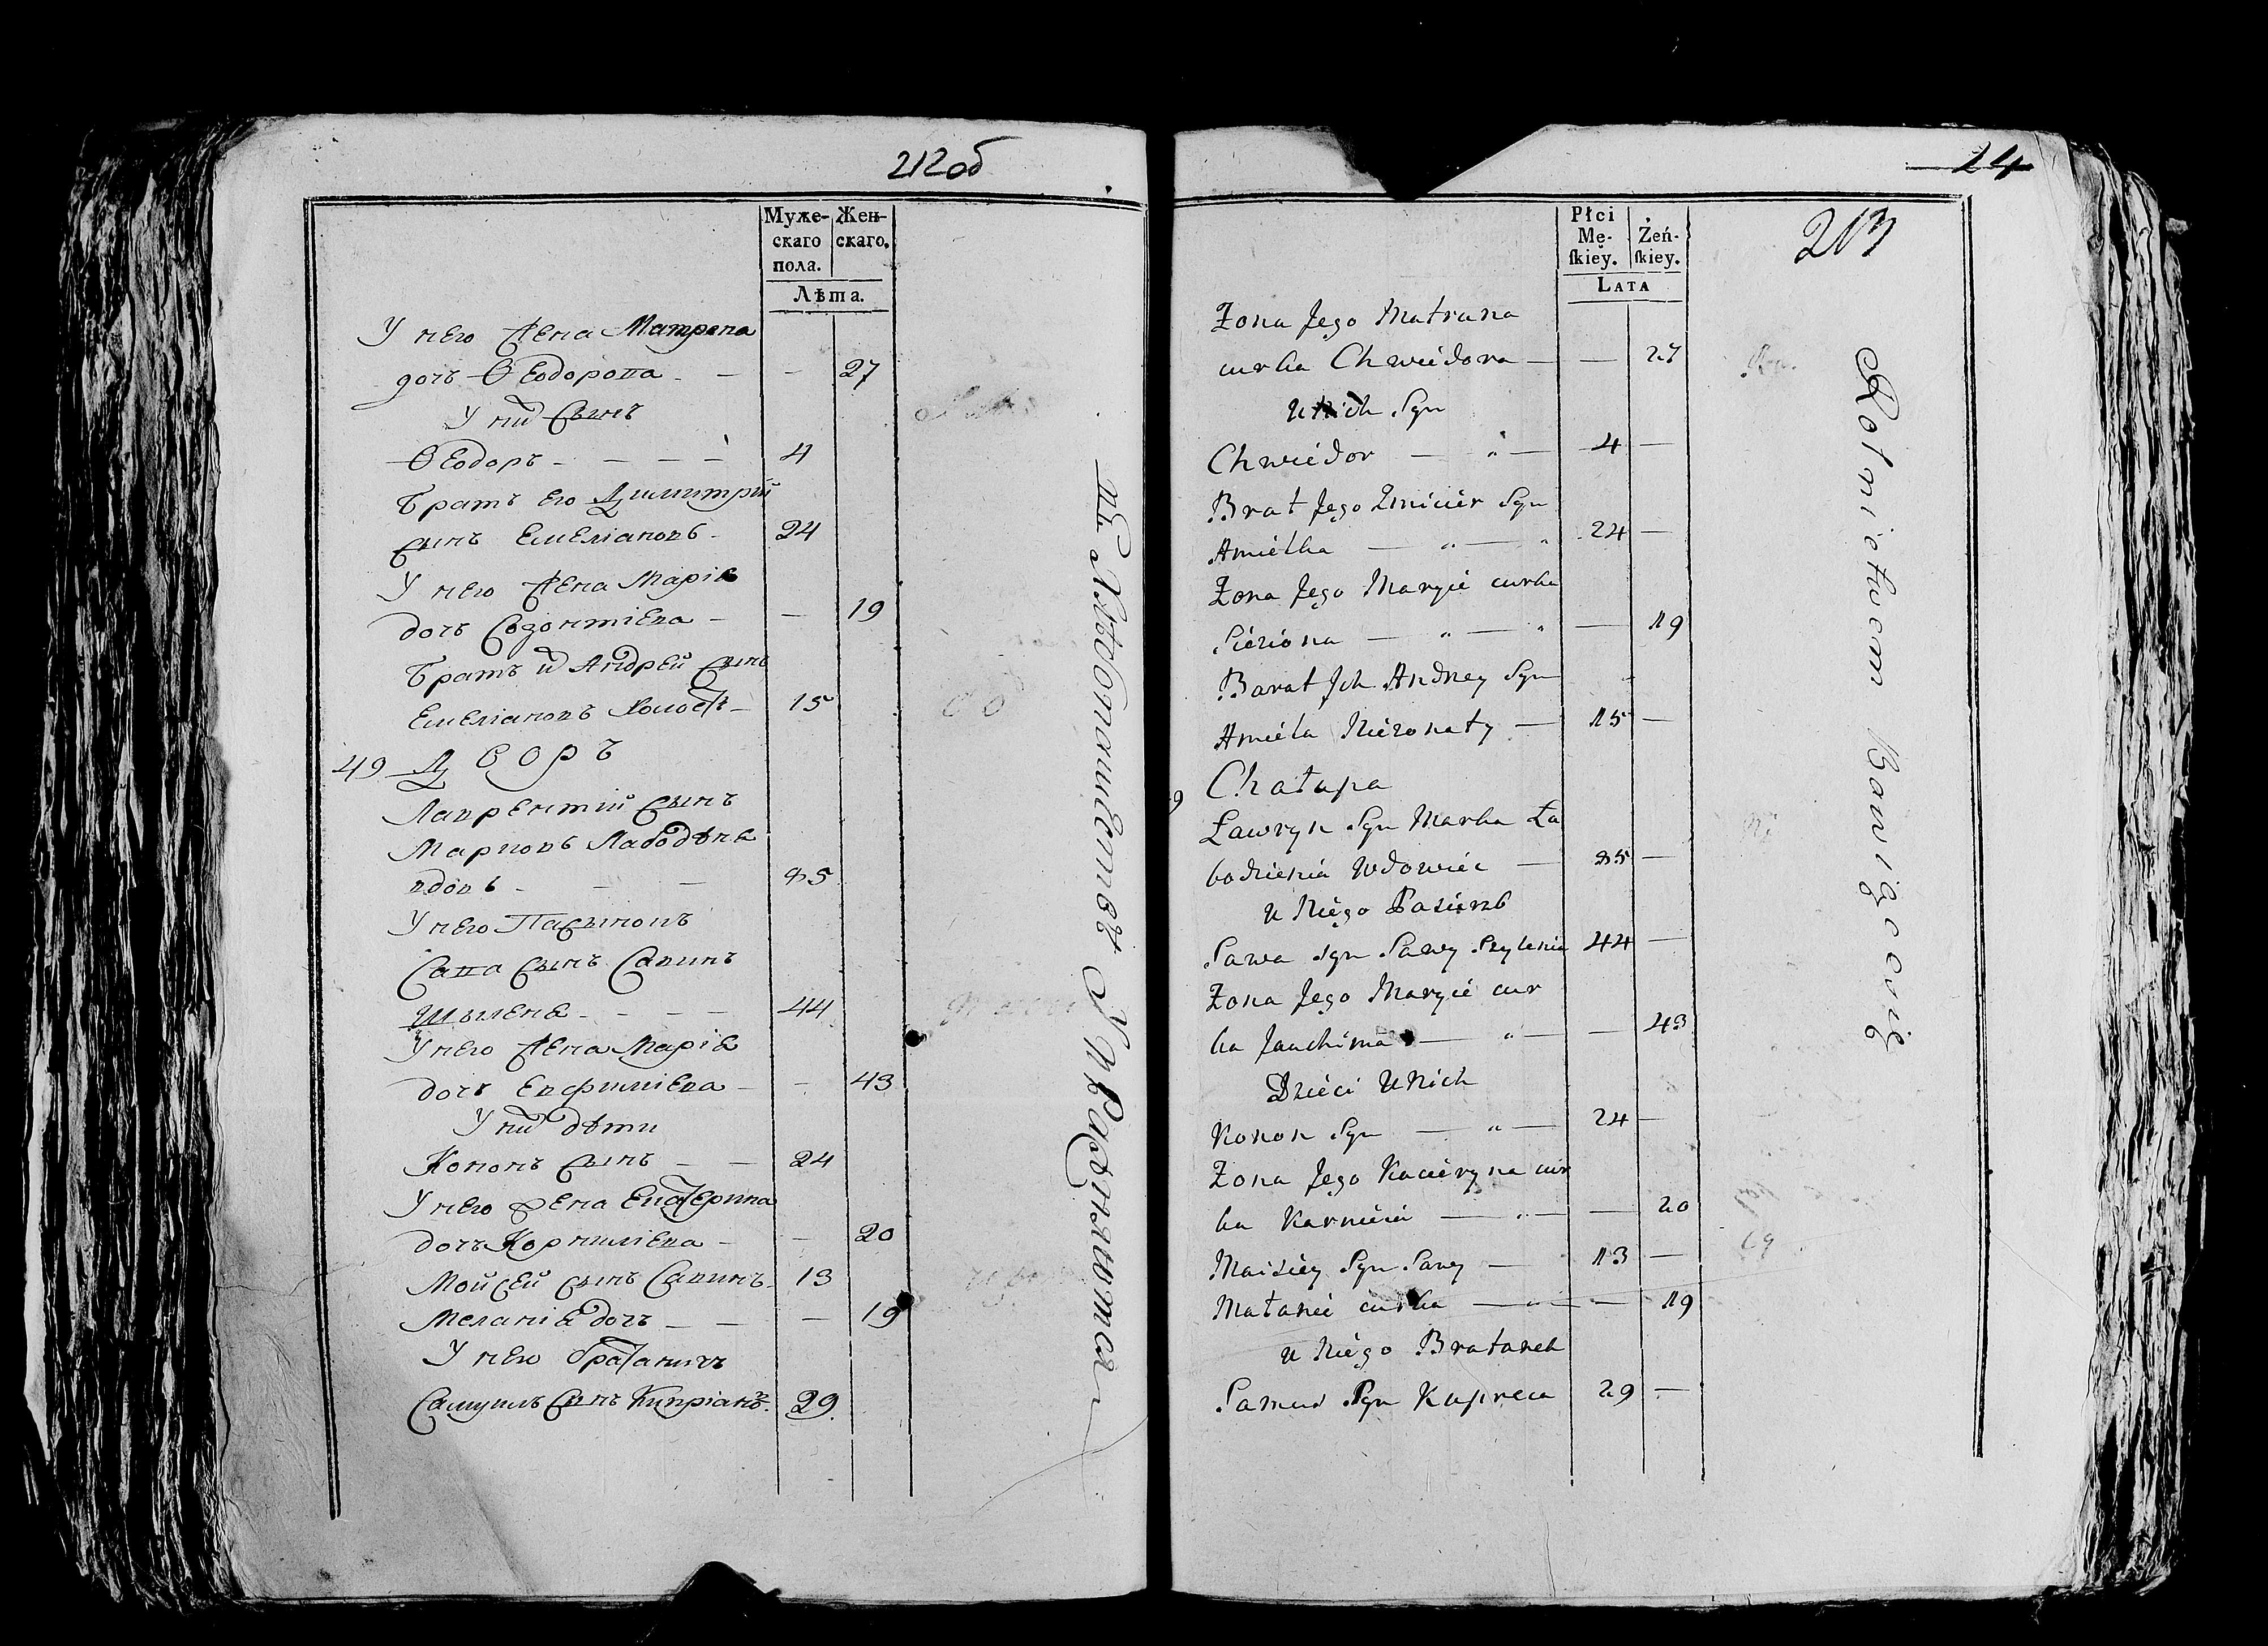 212об
Муже-
скаго
пола.
Жен-
скаго.
Лѣта.
У него жена Матрона
дочь Ѳеодорова - - - 27
У них сынъ
Ѳеодоръ - - - - 4
Братъ его Димитрій
сынъ Емеліановъ - 24
У него жена Марія
дочь Созонтіева - - 19
Братъ их Андрей сынъ
Емеліановъ холост - 15
49 Дворъ
Лаврентій сынъ
Марковъ Лабоденя
вдовъ - - - 85
У него Пасынокъ
Сава сынъ Савинъ
Шыленя - - - - 44
У него жена Марія
дочь Евфиміева - - 43
У них дѣти
Кононъ сынъ - - 24
У него жена Екатерина
дочь Корниліева - - 20
Мойсей сынъ Савинъ - 13
Меланія дочь - - - 19
У него братаничъ
Самуилъ сынъ Кипріанъ. 29
24
213
Płci
Mę-
ſkiey.
Żeń-
ſkiey.
LATA
Żona Jego Matruna
curka Chwiedora — — 27
u nich Syn
Chwiedor — " — 4 —
Brat Jego Zmicier Syn
Amielka — " — " 24 —
Żona Jego Maryie curka
Sieziona — " — " — 19
Barat Jch Andrey Syn
Amiela Nieżonaty — 15 —
9 Chałupa
Ławryn Syn Marka Ła
bodzienia Wdowiec — 85 —
u Niego Pasierzb
Sawa Syn Sawy Szylenia 44 —
Żona Jego Maryie cur
ka Jauchima — " — — 43
Dzieci u Nich
Konon Syn — " — 24 —
Żona Jego Kacieryna cur
ka Karnieia — " — — 20
Maisiey Syn Sawy — 13 —
Małanie curka — " — — 19
u Niego Bratanek
Samus Syn Kupreia 29 —
Rotmistwem